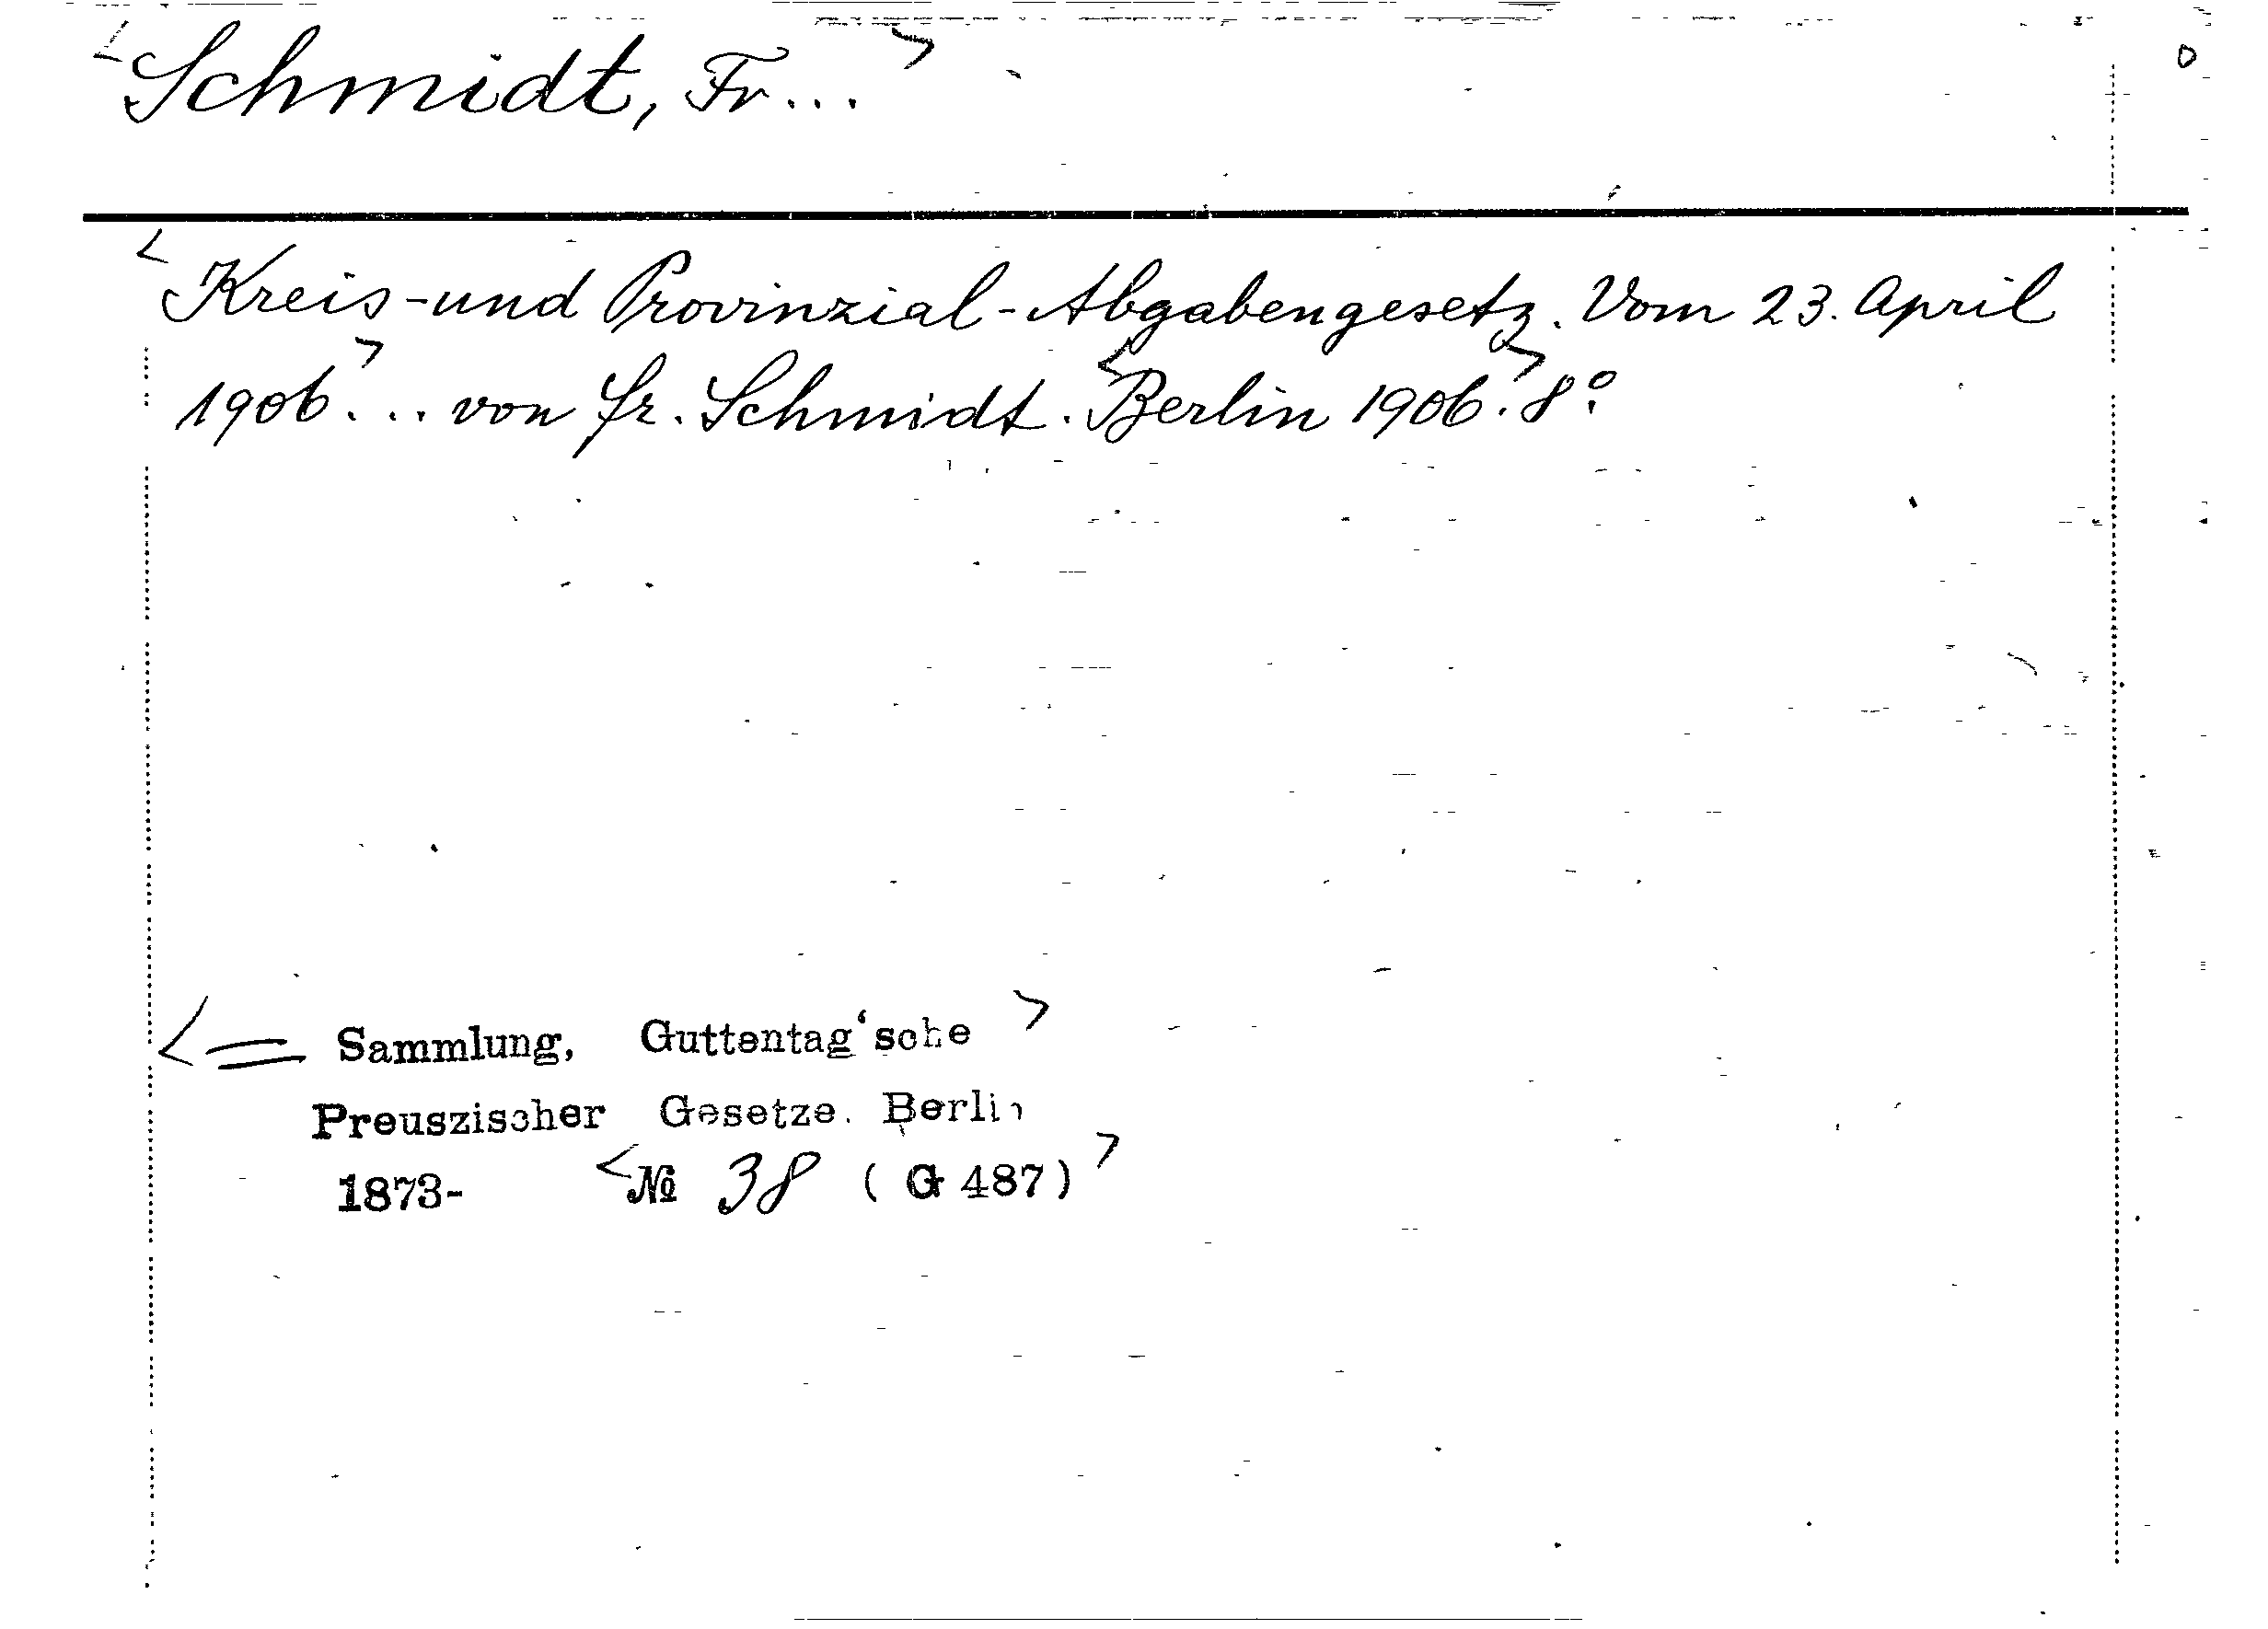 <Schmidt, Fr...>
<Kreis-und Provinzial-Abgabengesetz. Vom 23. April
1906>... von Fr. Schmidt. <Berlin 1906>. 8°.
<= Sammlung, Guttentag'sche>
Preuszischer Gesetze. Berlin
1873- <№ 38 (G 487)>